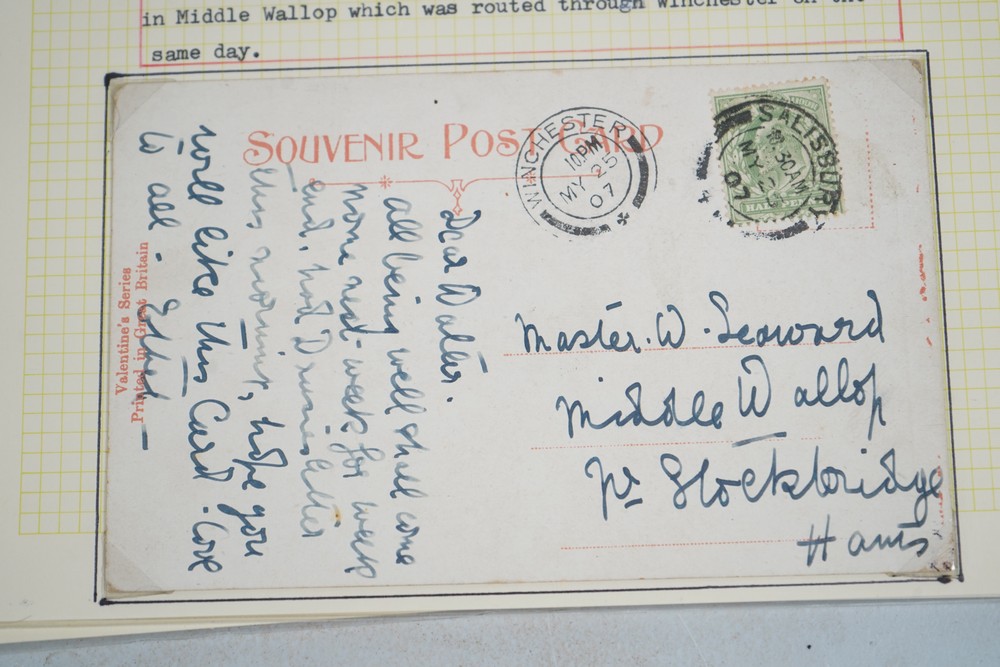 in Middle Wallop which was routed through Winchester on the
same day.
SOUVENIR POST CARD
WINCHESTER
10 PM
MY 25
07
SALISBURY
30AM
MY
07
HALFPENNY
Master. W. Seaward
Middle Wallop
Nr Stockbridge
Hants
Dear Walter.
all being well shall come
home next week for week
end, had D letter
this morning, hope you
will like this Card. Love
to all. Ethel
Valentine's Series
Printed in Great Britain